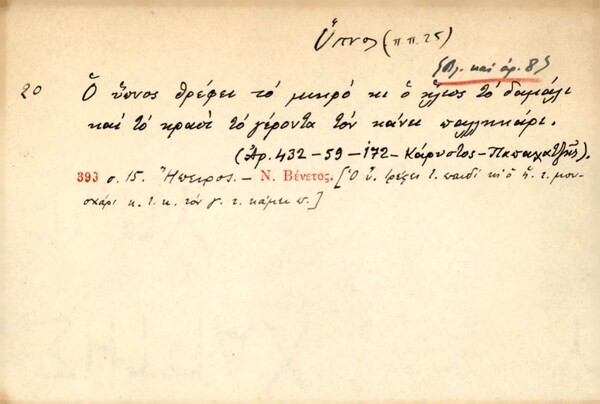 Ὕπνος (π.π. 25)
{Βλ. καὶ ἀρ. 8}
20 Ὁ ὕπνος θρέφει τὸ μικρὸ κι ὁ ἥλιος τὸ δαμάλι
καὶ τὸ κρασὶ τὸ γέροντα τὸν κάνει παλληκάρι.
(Ἀρ. 432 – 59 – 172 – Κάρυστος – Παπαχατζῆς).
393 σ. 15. Ἤπειρος. – Ν. Βένετος. [Ὁ ὕ. τρέφει τ. παιδὶ κι ὁ ἥ. τ. μου-
σχάρι κ. τ. κ. τὸν γ. τ. κάμει π.]